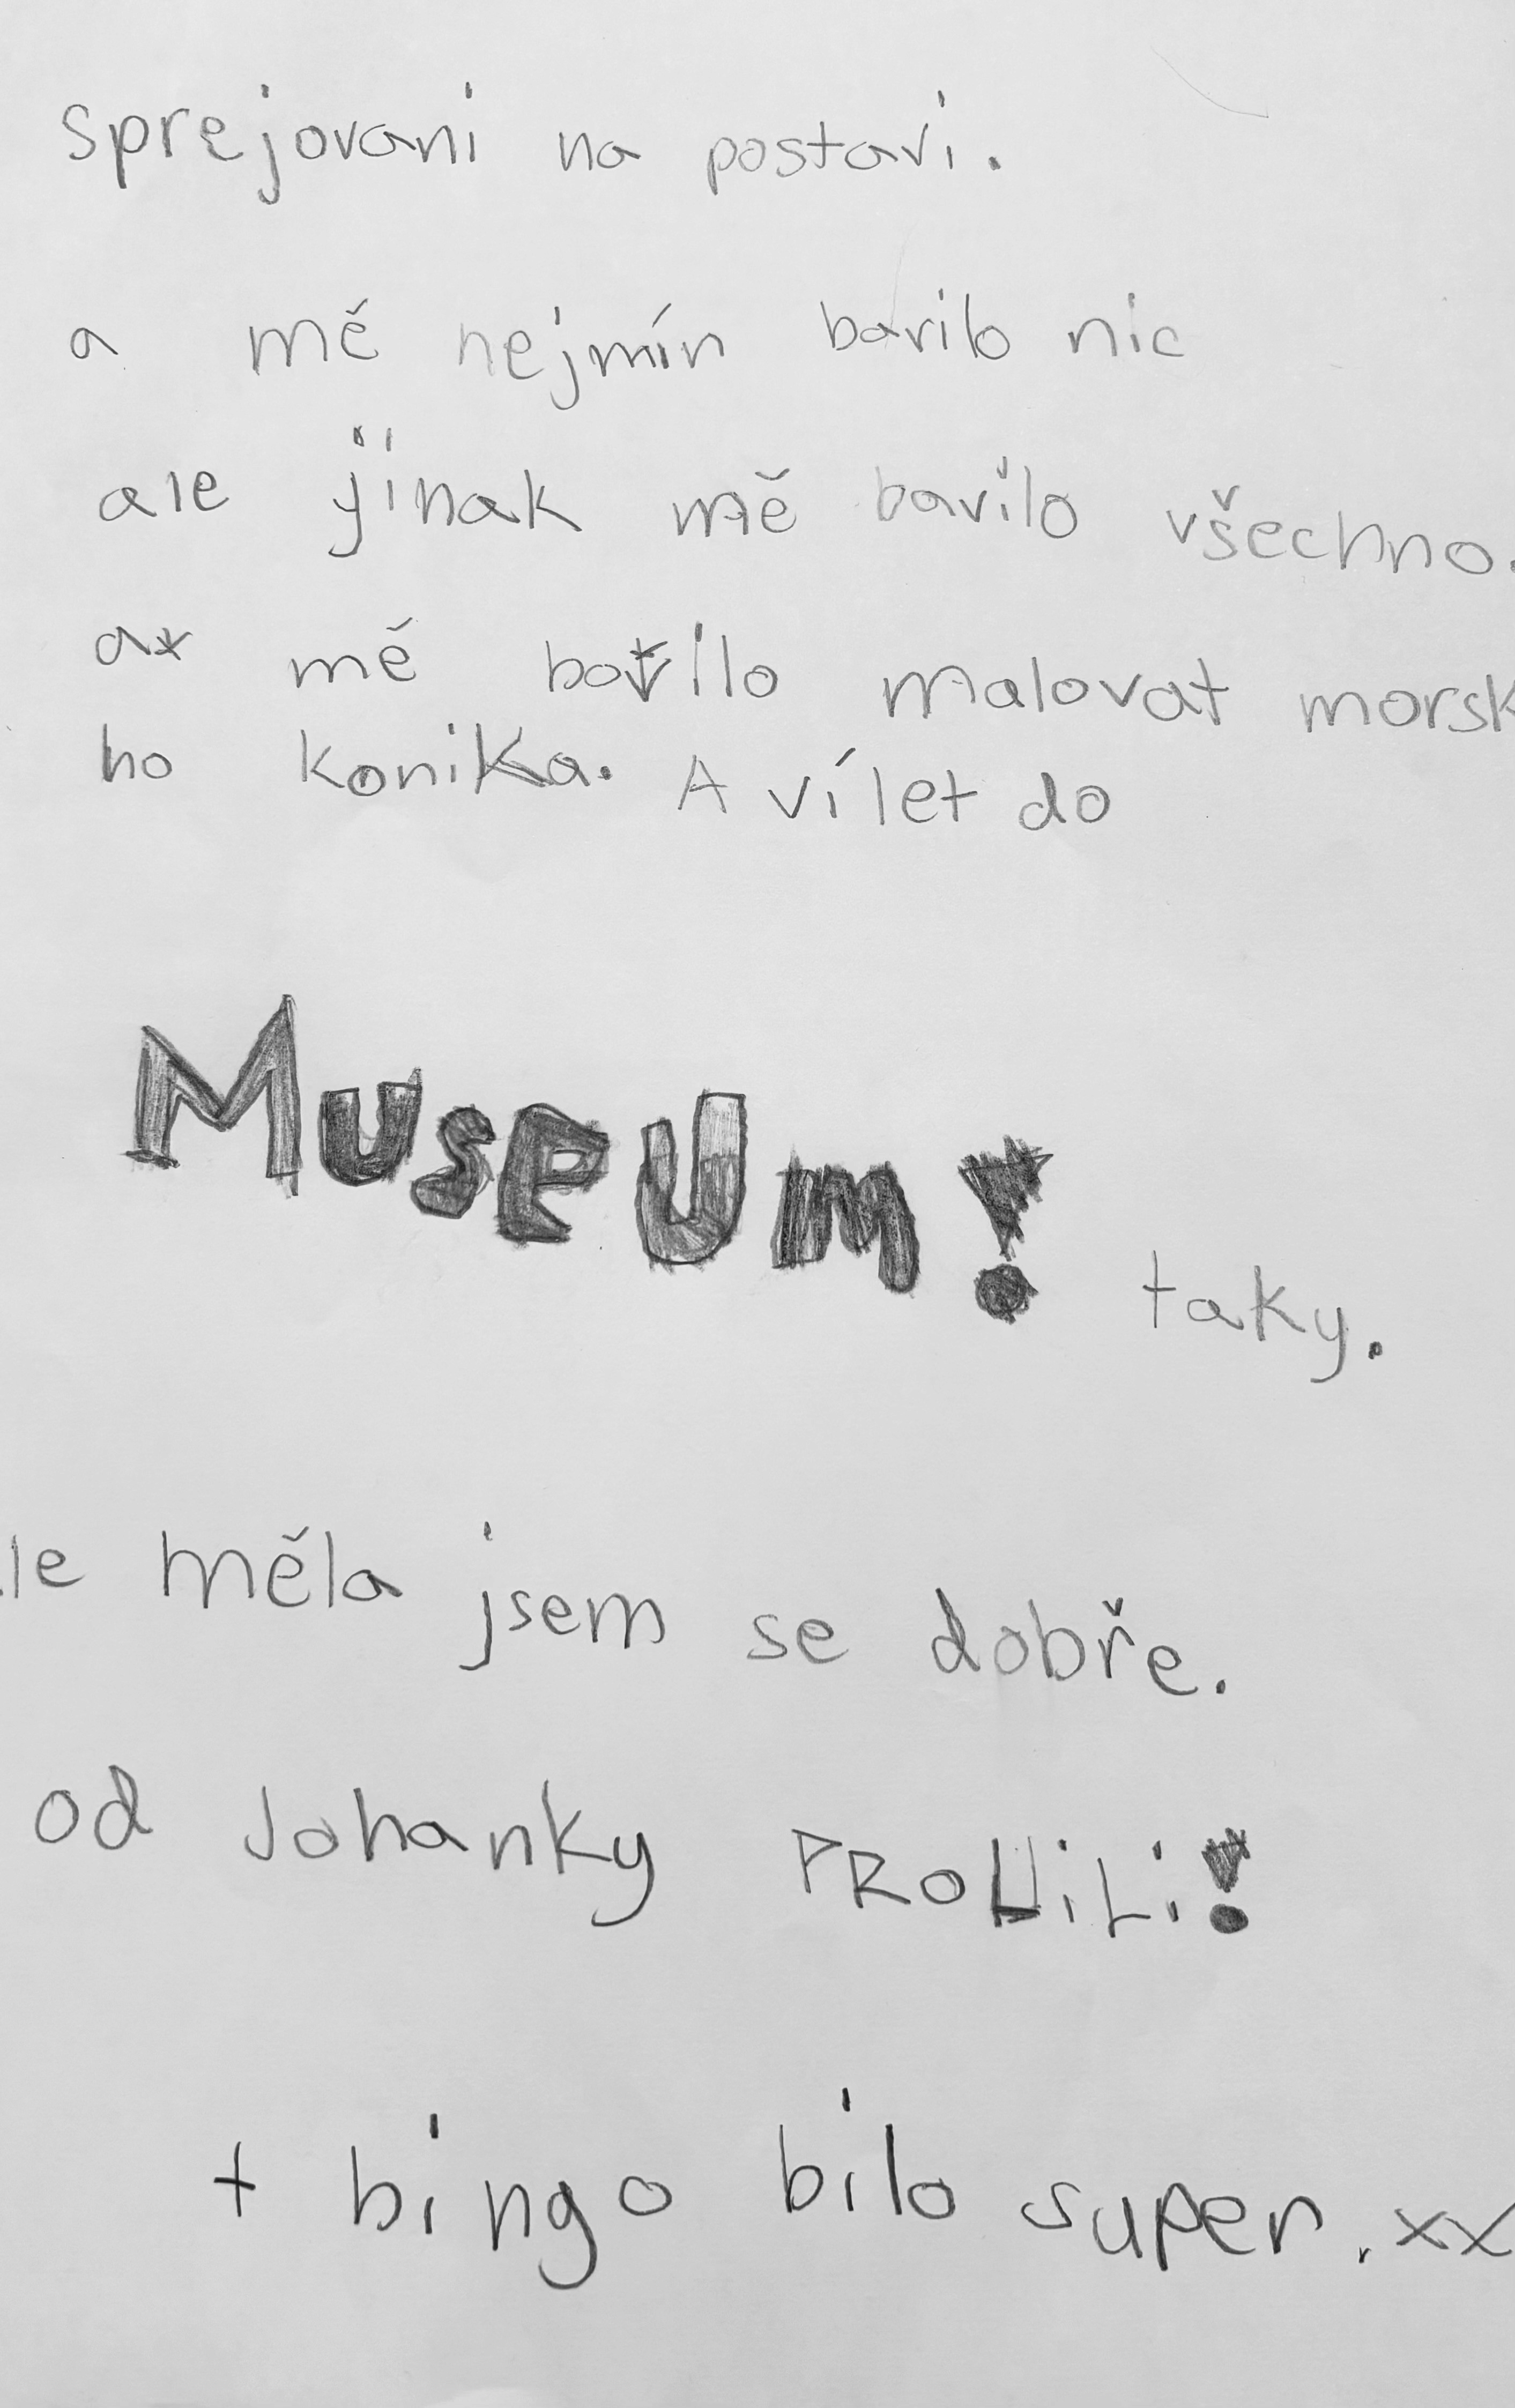 sprejovani na postavi.
a mě nejmín bavilo nic
ale jinak mě bavilo všechno.
a mě bavilo malovat morsk
ho konika. A vílet do
MuseUm! taky.
le měla jsem se dobře.
od Johanky PROUiLi!
+ bingo bilo super. xx